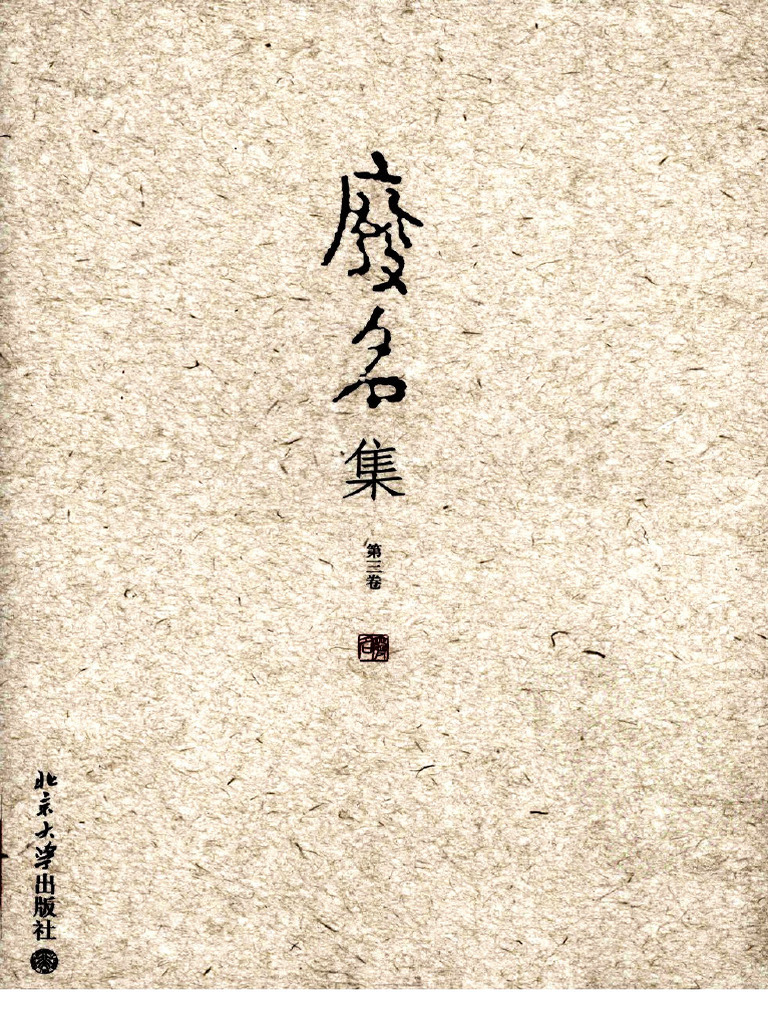 廢名
集
第三卷
廢名
北京大学出版社